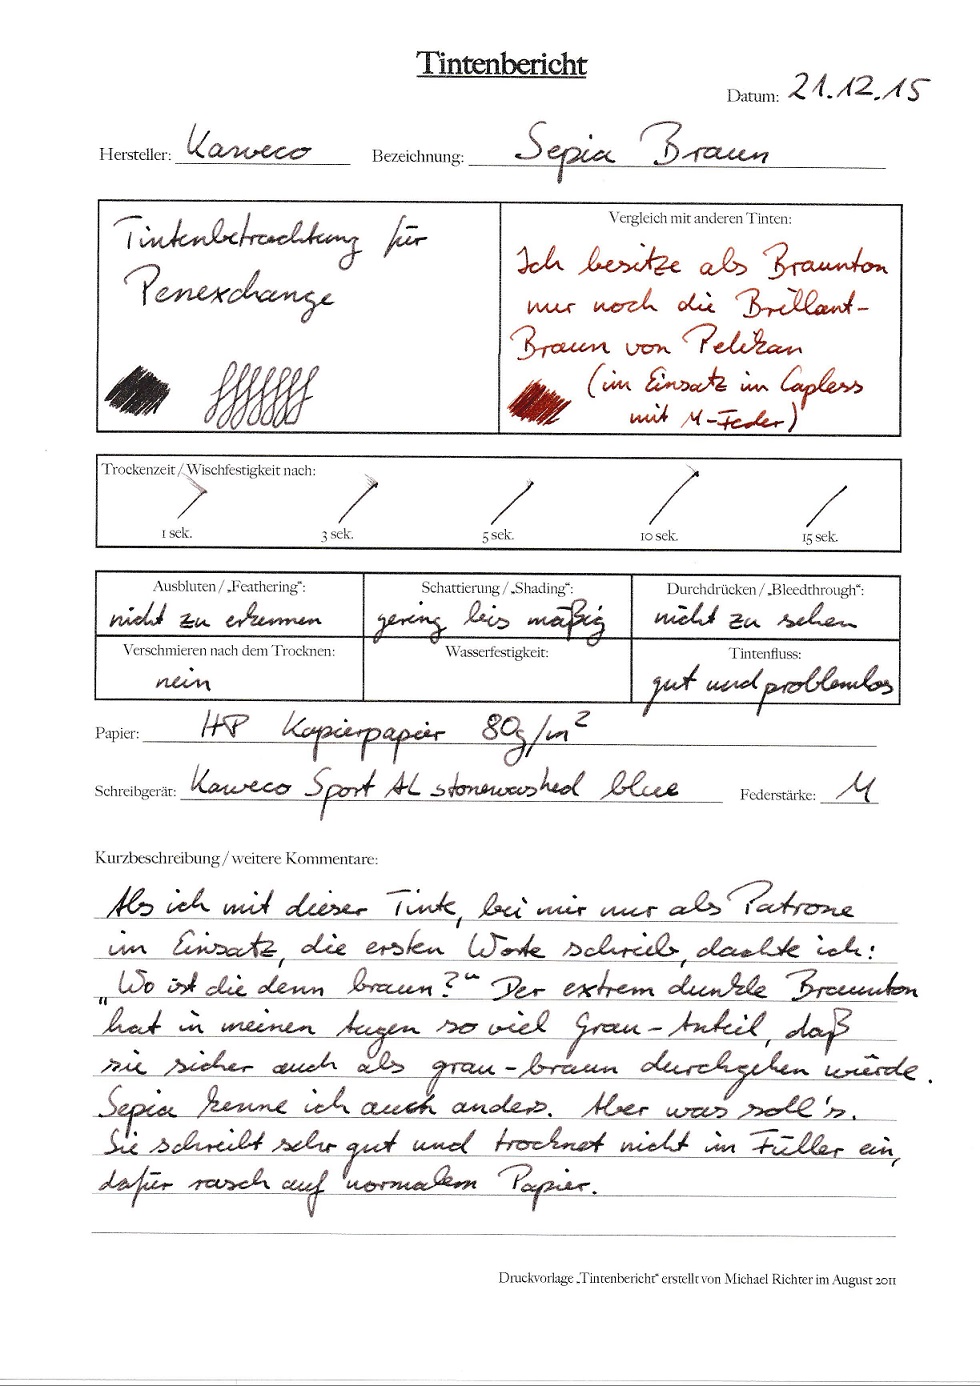 Tintenbericht
Datum: 21.12.15
Hersteller: Kaweco Bezeichnung: Sepia Braun
Tintenbetrachtung für
Penexchange
Vergleich mit anderen Tinten:
Ich besitze als Braunton
nur noch die Brillant-
Braun von Pelikan
(im Einsatz im Capless
mit M-Feder)
Trockenzeit / Wischfestigkeit nach:
1 sek. 3 sek. 5 sek. 10 sek. 15 sek.
Ausbluten / „Feathering“: Schattierung / „Shading“: Durchdrücken / „Bleedthrough“:
nicht zu erkennen gering bis mäßig nicht zu sehen
Verschmieren nach dem Trocknen: Wasserfestigkeit: Tintenfluss:
nein gut und problemlos
Papier: HP Kopierpapier 80g/m²
Schreibgerät: Kaweco Sport AL stonewashed blue Federstärke: M
Kurzbeschreibung / weitere Kommentare:
Als ich mit dieser Tinte, bei mir nur als Patrone
im Einsatz, die ersten Worte schrieb, dachte ich:
„Wo ist die denn braun?“ Der extrem dunkle Braunton
hat in meinen Augen so viel Grau-Anteil, daß
sie sicher auch als grau-braun durchgehen würde.
Sepia kenne ich auch anders. Aber was soll's.
Sie schreibt sehr gut und trocknet nicht im Füller ein,
dafür rasch auf normalem Papier.
Druckvorlage „Tintenbericht“ erstellt von Michael Richter im August 2011